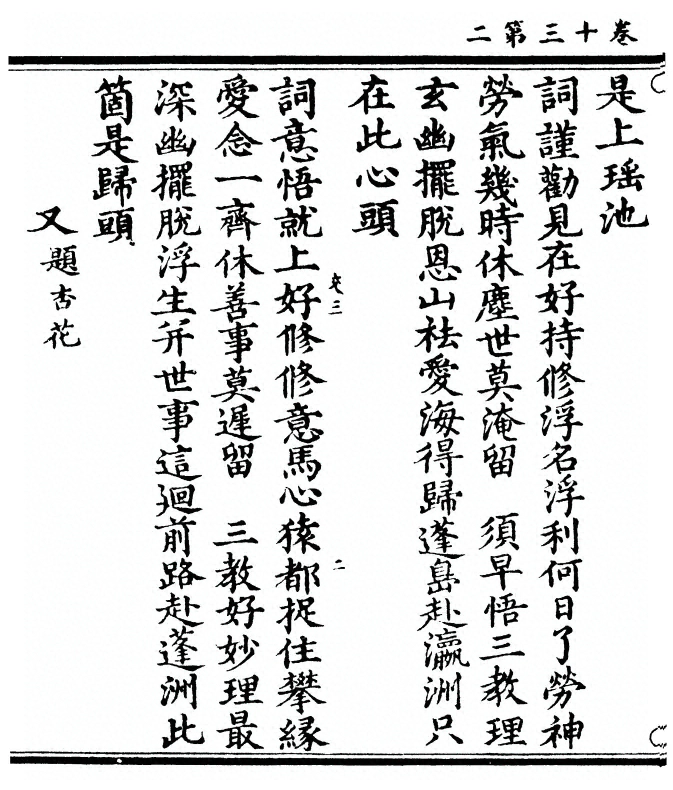 卷十三第二
是上瑶池
詞謹勸見在好持修浮名浮利何日了勞神
勞氣幾時休塵世莫淹留　須早悟三教理
玄幽擺脫恩山袪愛海得歸蓬島赴瀛洲只
在此心頭
詞意悟就上好修修意馬心猿都捉住攀緣
愛念一齊休善事莫遲留　三教好妙理最
深幽擺脫浮生弃世事這迴前路赴蓬洲此
箇是歸頭
又題杏花
二